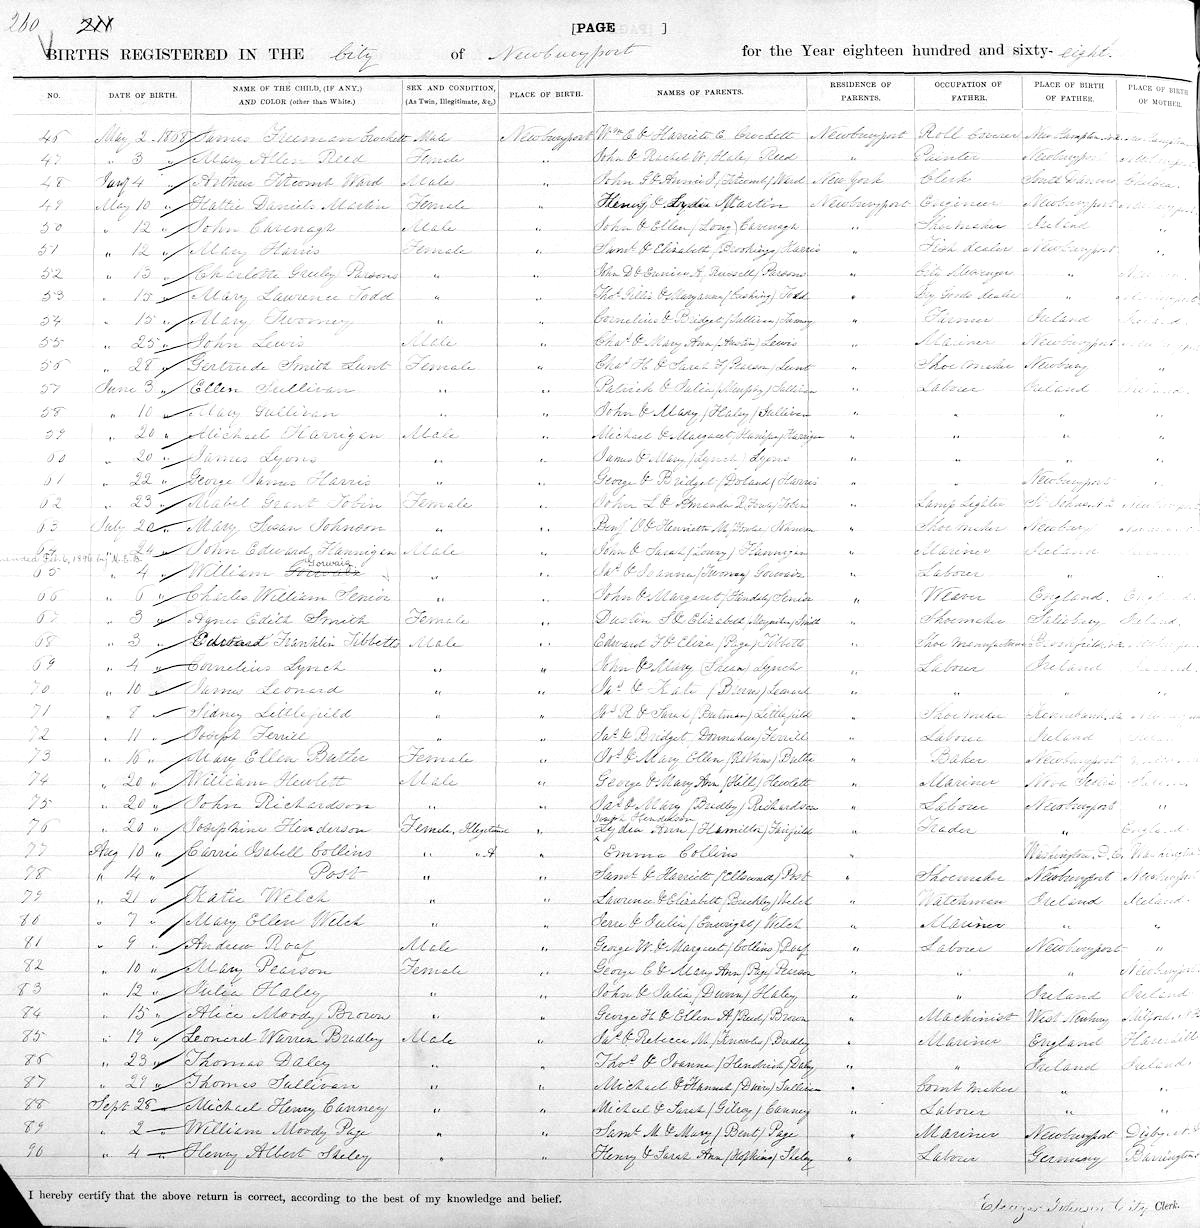 260 211 [PAGE ]
BIRTHS REGISTERED IN THE City of Newburyport for the Year eighteen hundred and sixty-eight.
NO. DATE OF BIRTH. NAME OF THE CHILD, (IF ANY,) AND COLOR (other than White.) SEX AND CONDITION, (As Twin, Illegitimate, &c,) PLACE OF BIRTH. NAMES OF PARENTS. RESIDENCE OF PARENTS. OCCUPATION OF FATHER. PLACE OF BIRTH OF FATHER. PLACE OF BIRTH OF MOTHER.
46 May 2 1868 James Freeman Crockett Male Newburyport Wm C & Harriet E Crockett Newburyport Roll Coverer
47 " 3 " Mary Allen Reed Female " John & Rachel W (Haley) Reed " Painter Newburyport
48 4 " Arthur Titcomb Ward Male " John G & Annie J (Titcomb) Ward New York Clerk South Danvers Chelsea
49 May 10 " Hattie Daniels Martin Female " Henry & Lydia Martin Newburyport Engineer Newburyport
50 " 12 " John Cavenagh Male " John & Ellen (Long) Cavenagh " Shoemaker Ireland "
51 " 12 " Mary Harris Female " Saml & Elizabeth (Brookings) Harris " Fish Dealer Newburyport "
52 " 13 " Charlotte Greeley Parsons " " John D & Eunice A (Russell) Parsons " City Messenger "
53 " 15 " Mary Lawrence Todd " " Thos Gillis & Maryanna (Cushing) Todd " Dry Goods Dealer "
54 " 15 " Mary Twomey " " Cornelius & Bridget (Sullivan) Twomey " Farmer Ireland Ireland
55 " 25 " John Lewis Male " Chas & Mary Ann (Austin) Lewis " Mariner Newburyport
56 " 28 " Gertrude Smith Lunt Female " Chas H & Sarah F (Pearson) Lunt " Shoemaker Newbury "
57 June 3 " Ellen Sullivan " " Patrick & Julia (Murphy) Sullivan " Laborer Ireland Ireland
58 " 10 Mary Sullivan " " John & Mary (Haley) Sullivan " " " "
59 " 20 " Michael Harrigan Male " Michael & Margaret Harrigan " " " "
60 " 20 " James Lyons " " James & Mary (Lynch) Lyons " " " "
61 " 22 " George James Harris " " George & Bridget (Doland) Harris " " Newburyport "
62 " 23 " Mabel Grant Tobin Female " John L & Amanda Tobin " Lamp Lighter
63 July 20 Mary Susan Johnson " " Benj O & Henrietta M Johnson " Shoemaker Newbury
64 " 24 John Edward Flannigan Male " John & Sarah (Lowry) Flannigan " Mariner Ireland
Amended Feb. 6, 1896 by H.E.B.
Gorwaiz
65 " 4 " William " " Jas & Joanna (Twomey) Gorwaiz " Laborer " "
66 " 6 " Charles William Senior " " John & Margaret (Hendsby) Senior " Weaver England. England
67 " 3 " Agnes Edith Smith Female " Dustin S & Elizabeth Smith " Shoemaker Salisbury Ireland
68 " 3 " Edward Franklin Tibbetts Male " Edward F & Eliza (Page) Tibbetts "
69 " 4 " Cornelius Lynch " " John & Mary (Shean) Lynch " Laborer Ireland Ireland
70 " 10 " James Leonard " " Jas & Kate (Burns) Leonard " " " "
71 " 8 Sidney Littlefield " " Js R & Sarah (Butman) Littlefield " Shoemaker
72 " 11 " Joseph Ferrill " " Jas & Bridget Ferrill " Laborer Ireland
73 " 16 " Mary Ellen Butler Female " Js & Mary Ellen Butler " Baker Newburyport
74 " 20 " William Hewlett Male " George & Mary Ann (Hill) Hewlett " Mariner Nova Scotia
75 " 20 " John Richardson " " Jas & Mary (Bradley) Richardson " Laborer Newburyport "
Joseph Henderson
76 " 20 " Josephine Henderson Female, Illegitimate " Lydia Ann (Hamilton) Fairfield " Trader " England
77 Aug 10 " Carrie Isabell Collins " " A " Emma Collins " Washington D.C. Washington
78 " 14 " Post " Saml & Harriett (Ellwood) Post " Shoemaker Newburyport Newburyport
79 " 21 " Katie Welch " " Lawrence & Elizabeth (Buckley) Welch " Watchman Ireland Ireland
80 " 7 " Mary Ellen Welch " " Jere & Julia (Enwright) Welch " Mariner " "
81 " 9 " Andrew Roaf Male " George W. & Margaret (Collins) Roaf " Laborer Newburyport "
82 " 10 " Mary Pearson Female " George C & Mary Ann (Page) Pearson " " " Newburyport
83 " 12 " Julia Haley " " John & Julia (Dunn) Haley " " Ireland Ireland
84 " 15 " Alice Moody Brown " " George H & Ellen A (Reed) Brown " Machinist West Newbury Milford
85 " 19 " Leonard Warren Bradley Male " Jas & Rebecca M (Knowles) Bradley " Mariner England Haverhill
86 " 23 " Thomas Daley " " Thos & Joanna (Hendrick) Daley " " Ireland Ireland
87 " 29 " Thomas Sullivan " " Michael & Hannah Sullivan " Comb Maker " "
88 Sept 28 Michael Henry Canney " " Michael & Sarah (Gilroy) Canney " Laborer " "
89 " 2 William Moody Page " " Saml M & Mary (Bent) Page " Mariner Newburyport Digby
90 " 4 " Henry Albert Seeley " " Henry & Sarah Ann (Hopkins) Seeley " Laborer Germany Barrington
I hereby certify that the above return is correct, according to the best of my knowledge and belief.
Johnson City Clerk.